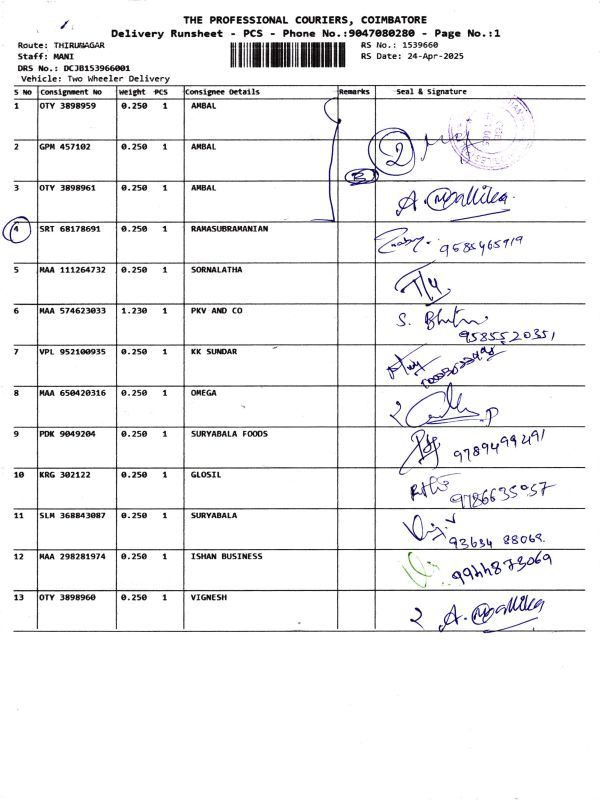 THE PROFESSIONAL COURIERS, COIMBATORE
Delivery Runsheet - PCS - Phone No.:9047080280 - Page No.:1
Route: THIRUNAGAR RS No.: 1539660
Staff: MANI RS Date: 24-Apr-2025
DRS No.: DCJB153966001
Vehicle: Two Wheeler Delivery
S No Consignment No Weight PCS Consignee Details Remarks Seal & Signature
1 OTY 3898959 0.250 1 AMBAL
2 GPM 457102 0.250 1 AMBAL 2
3 OTY 3898961 0.250 1 AMBAL 3 A. Mallika
4 SRT 68178691 0.250 1 RAMASUBRAMANIAN 9585465919
5 MAA 111264732 0.250 1 SORNALATHA
6 MAA 574623033 1.230 1 PKV AND CO S.
9585520351
7 VPL 952100935 0.250 1 KK SUNDAR
8 MAA 650420316 0.250 1 OMEGA
9 PDK 9049204 0.250 1 SURYABALA FOODS 9789499291
10 KRG 302122 0.250 1 GLOSIL 9786635057
11 SLM 368843087 0.250 1 SURYABALA
93634 88069
12 MAA 298281974 0.250 1 ISHAN BUSINESS 9944873069
13 OTY 3898960 0.250 1 VIGNESH 2 A. Mallika